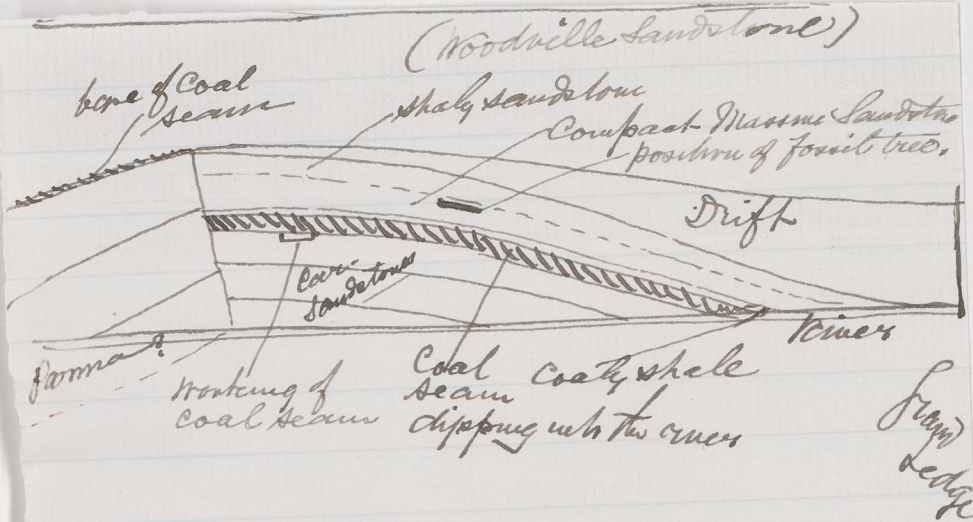 (Woodville Sandstone)
base of Coal
seam
shaly sandstone
Compact Massive Sandstone
position of fossil tree.
Drift
Sandstones
River
Parma?
Working of
coal seam
Coal
seam
dipping into the river
Coaly shale
Grand
Ledge